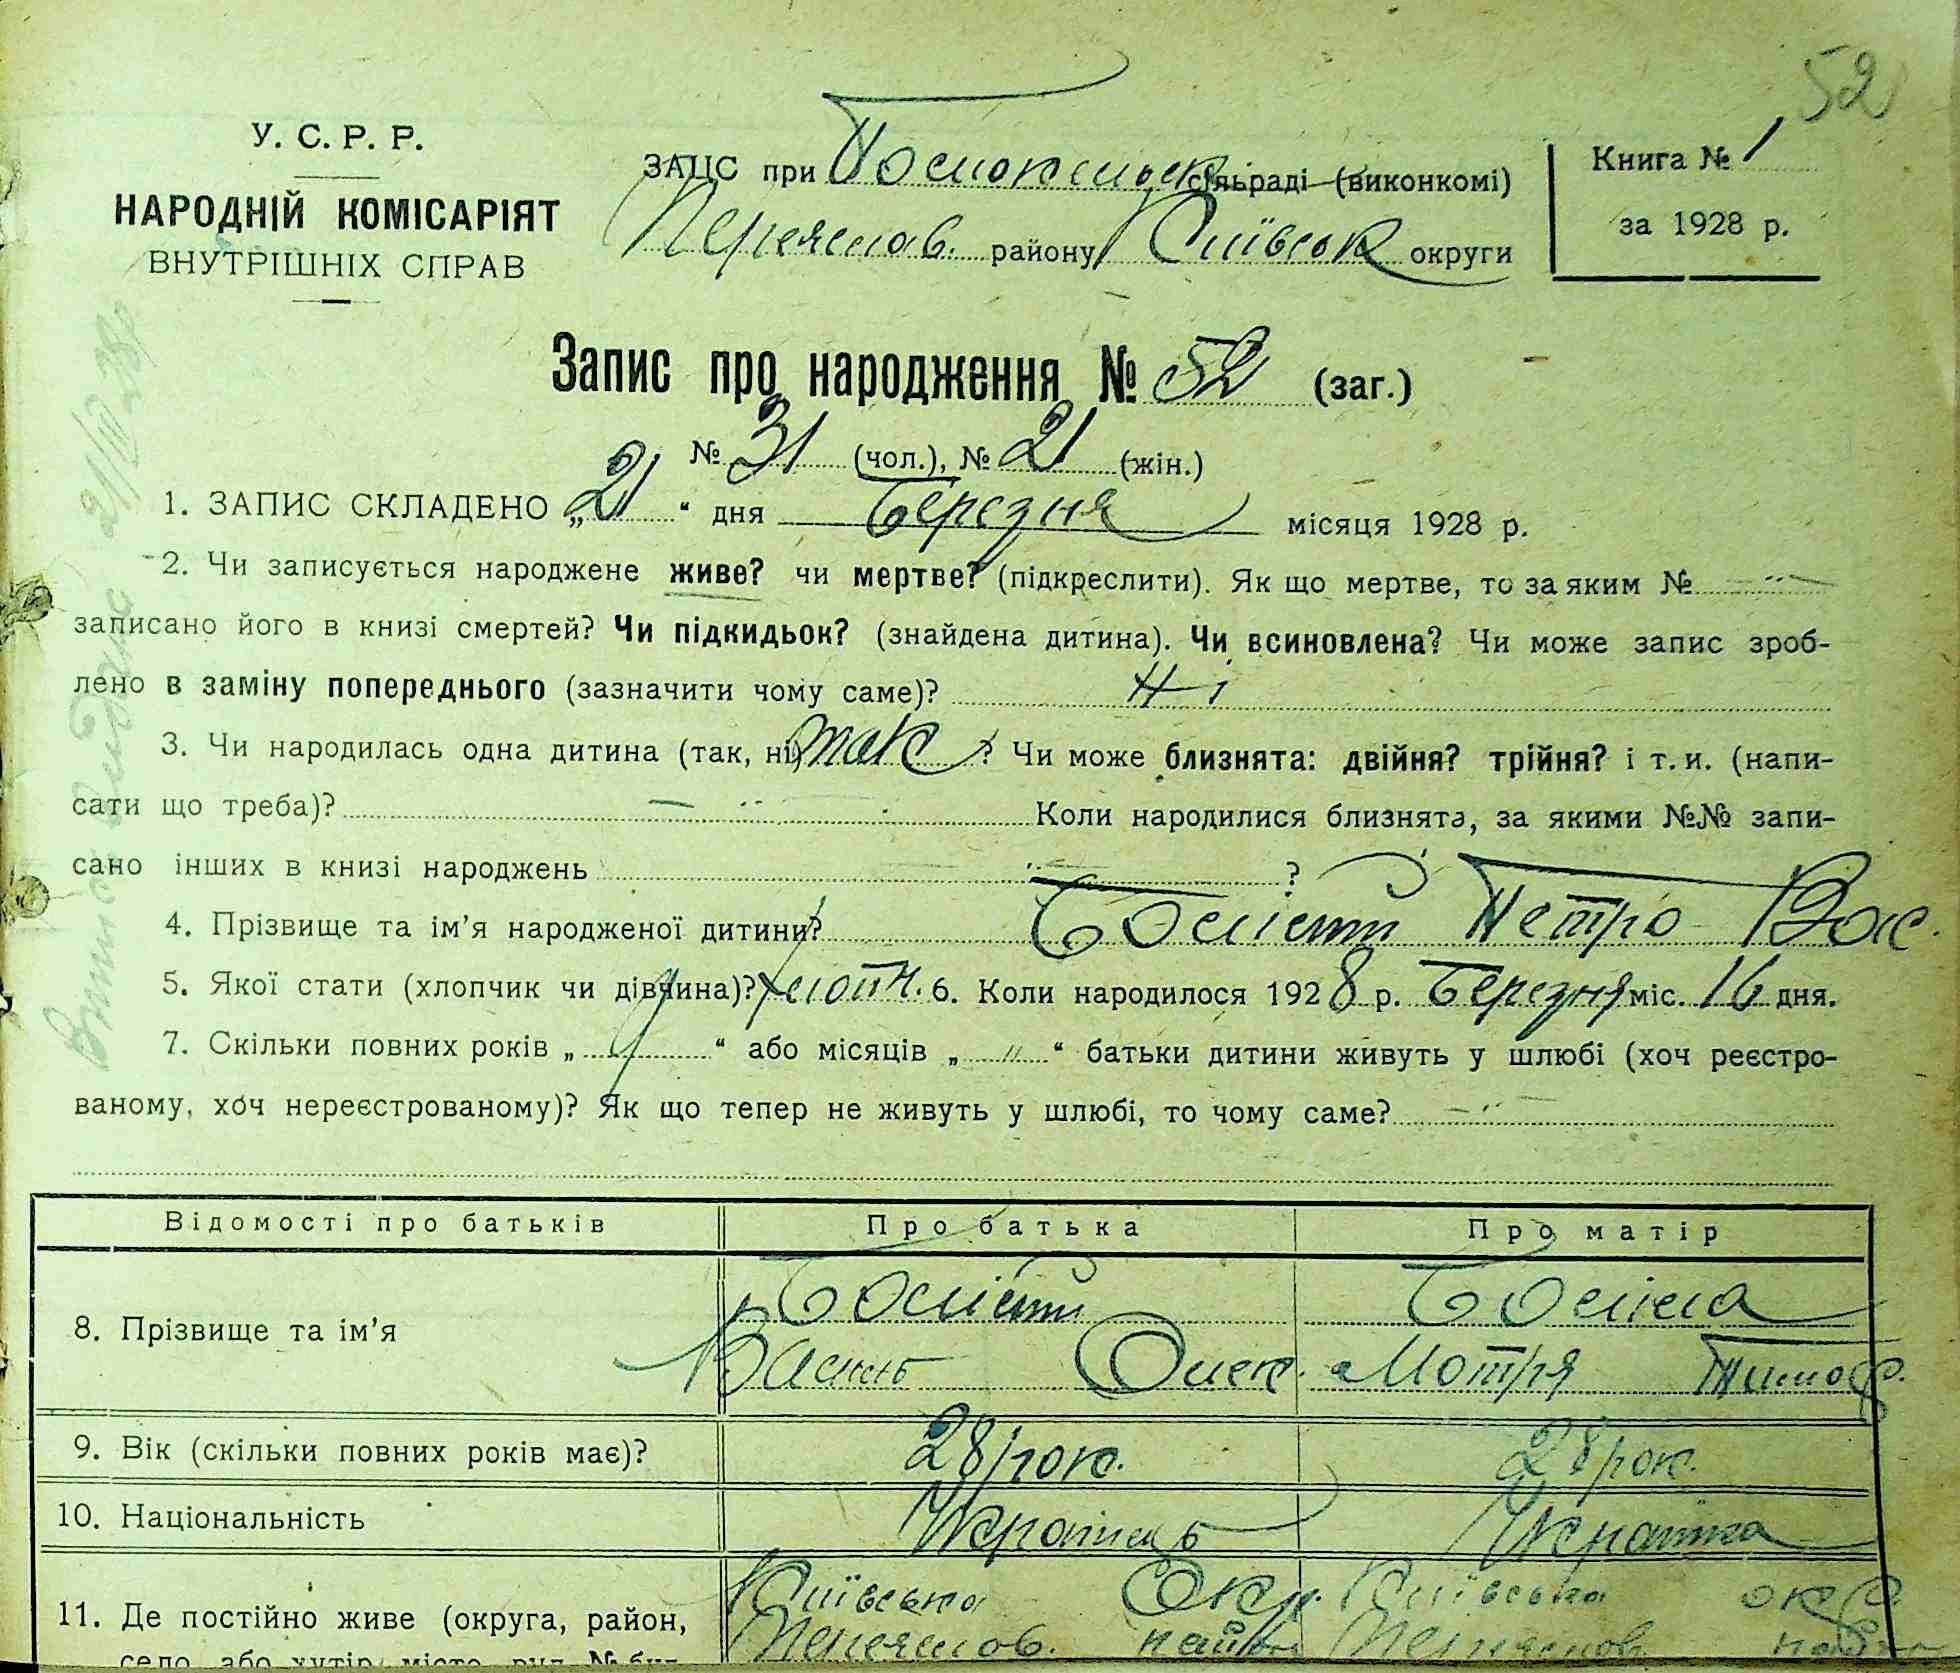 52
У. С. Р. Р.
НАРОДНІЙ КОМІСАРІЯТ
ВНУТРІШНІХ СПРАВ
ЗАЦС при сільраді (виконкомі)
Переяслав. району Київськ округи
Книга № 1
за 1928 р.
Запис про народження № 52 (заг.)
№ 31 (чол.), № 21 (жін.)
1. ЗАПИС СКЛАДЕНО „21“ дня Березня місяця 1928 р.
2. Чи записується народжене живе? чи мертве? (підкреслити). Як що мертве, то за яким №
записано його в книзі смертей? Чи підкидьок? (знайдена дитина). Чи всиновлена? Чи може запис зроб-
лено в заміну попереднього (зазначити чому саме)? Ні
3. Чи народилась одна дитина (так, ні) так? Чи може близнята: двійня? трійня? і т. и. (напи-
сати що треба)? Коли народилися близнята, за якими №№ запи-
сано інших в книзі народжень ?
4. Прізвище та ім'я народженої дитини? Петро Вас.
5. Якої стати (хлопчик чи дівчина)? хлопч. 6. Коли народилося 1928 р. Березня міс. 16 дня.
7. Скільки повних років „ “ або місяців „ " “ батьки дитини живуть у шлюбі (хоч реєстро-
ваному, хоч нереєстрованому)? Як що тепер не живуть у шлюбі, то чому саме?
Відомості про батьків Про батька Про матір
8. Прізвище та ім'я
Василь Олек. Мотря Тимоф.
9. Вік (скільки повних років має)? 28 рок. 28 рок.
10. Національність Українець Українка
11. Де постійно живе (округа, район, Київська Окр. Київська окр.
село, або хутір, місто, вул. № буд. Переяслов. район Переяслов. район